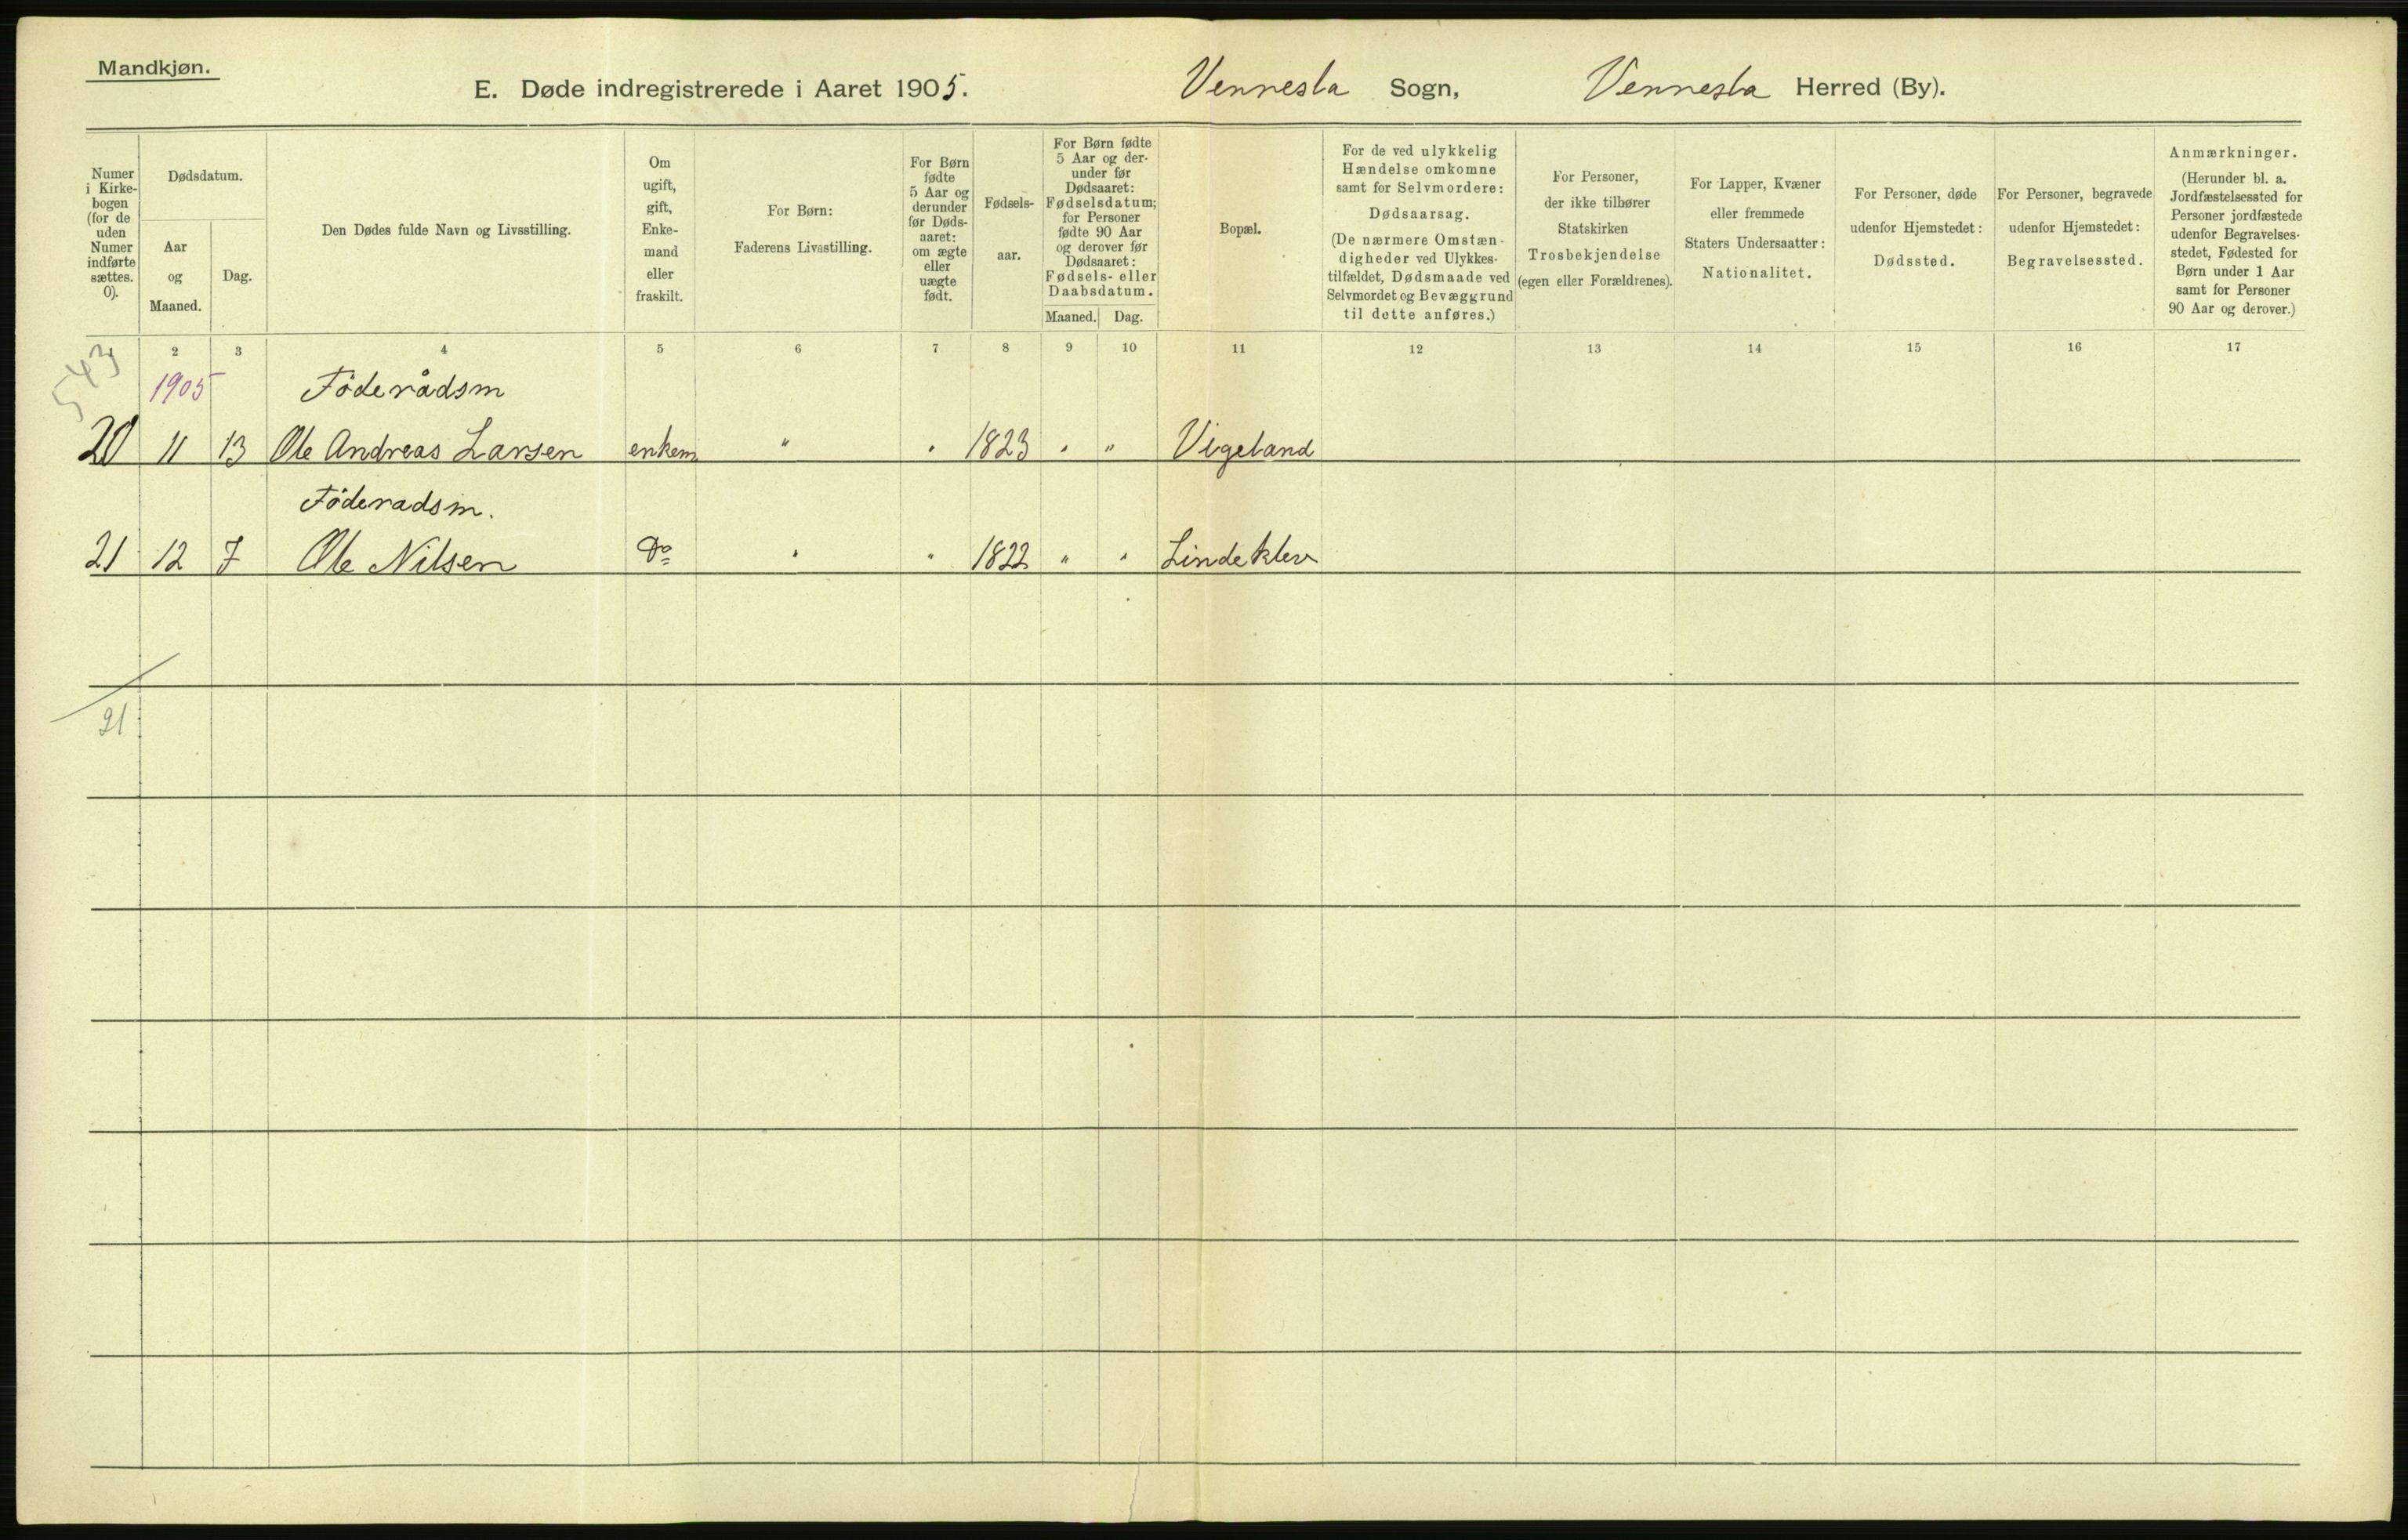 Mandkjøn.
E. Døde indregistrerede i Aaret 1905. Vennesla Sogn, Vennesla Herred (By).
Numer
i Kirke-
bogen
(for de
uden
Numer
indførte
sættes.
0).
Dødsdatum.
Aar
og
Maaned.
Dag.
Den Dødes fulde Navn og Livsstilling.
Om
ugift,
gift,
Enke-
mand
eller
fraskilt.
For Børn:
Faderens Livsstilling.
For Børn
fødte
5 Aar og
derunder
før Døds-
aaret:
om ægte
eller
uægte
født.
Fødsels-
aar.
For Børn fødte
5 Aar og der-
under før
Dødsaaret:
Fødselsdatum;
for Personer
fødte 90 Aar
og derover før
Dødsaaret:
Fødsels- eller
Daabsdatum.
Maaned. Dag.
Bopæl.
For de ved ulykkelig
Hændelse omkomne
samt for Selvmordere:
Dødsaarsag.
(De nærmere Omstæn-
digheder ved Ulykkes-
tilfældet, Dødsmaade ved
Selvmordet og Bevæggrund
til dette anføres.)
For Personer,
der ikke tilhører
Statskirken
Trosbekjendelse
(egen eller Forældrenes).
For Lapper, Kvæner
eller fremmede
Staters Undersaatter:
Nationalitet.
For Personer, døde
udenfor Hjemstedet:
Dødssted.
For Personer, begravede
udenfor Hjemstedet:
Begravelsessted.
Anmærkninger.
(Herunder bl. a.
Jordfæstelsessted for
Personer jordfæstede
udenfor Begravelses-
stedet, Fødested for
Børn under 1 Aar
samt for Personer
90 Aar og derover.)
2 3 4 5 6 7 8 9 10 11 12 13 14 15 16 17
543
1905 Föderådsm
20 11 13 Ole Andreas Larsen enkem " " 1823 " " Vigeland
Föderadsm.
21 12 7 Ole Nilsen Do " " 1822 " " Lindeklev
21